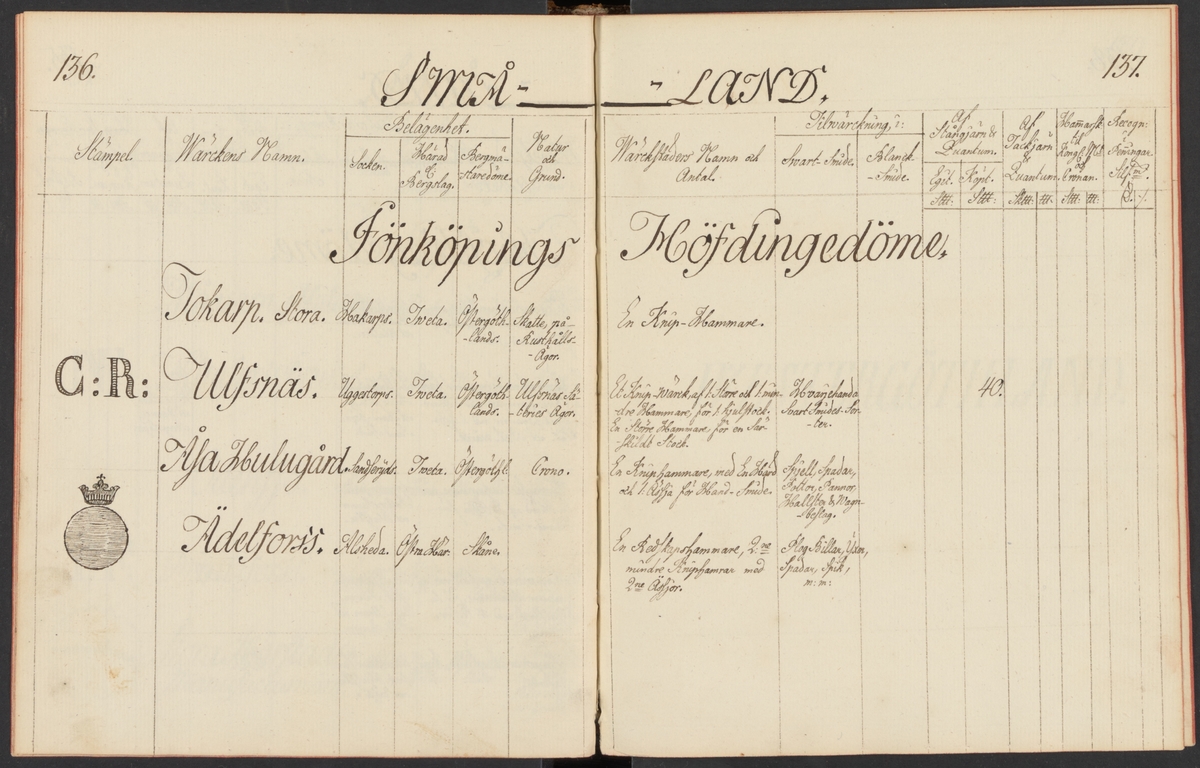 136.
137.
SMÅ- -LAND.
Stämpel.
Wärckens Namn.
Belägenhet.
Socken.
Härad
&
Bergslag.
Bergmä-
staredöme.
Natur
och
Grund.
Wärckstäders Namn och
Antal.
Tilwärckning, i:
Svart-Smide.
Blanck
-Smide.
Af
Stångjärn &
Quantum.
Eget.
Köpt.
Af
Tackjärn
Quantum.
Hammarsk:
til
Kongl. Mt
och
Cronan.
Recogn:
Penningar.
Jönköpings Höfdingedöme.
Tokarp. Stora. Hakarps. Tweta. Östergöth-
lands.
Skatte, på
Rusthålls-
-Ägor.
En Knip-Hammare.
C:R: Ulfsnäs. Tweta. Östergöth-
lands.
Ulfsnäs Sä-
-teries Ägor.
Et Knip-Wärck, af 1. Större och 1. min-
dre Hammare, för 1. hjulstock.
En Större Hammare, för en Sär-
skildt Stock.
Hvarjehanda
Svart Smides-Sor-
-ter.
40.
Åsa Hulugård. Sandseryds. Tweta. Östergöthl. Crono.
En Kniphammare, med En Härd
och 1. Äsja för Hand-Smide.
Spjell, Spadar,
Pannor,
Hällston & Wagn-
-beslag.
Ädelforss. Alsheda. Östra Här. Skåne.
En Redskapshammare, 2:ne
mindre Kniphamrar med
2:ne Äsjor.
Plog Billar, Yxen,
Spadar, Spik,
m:m: